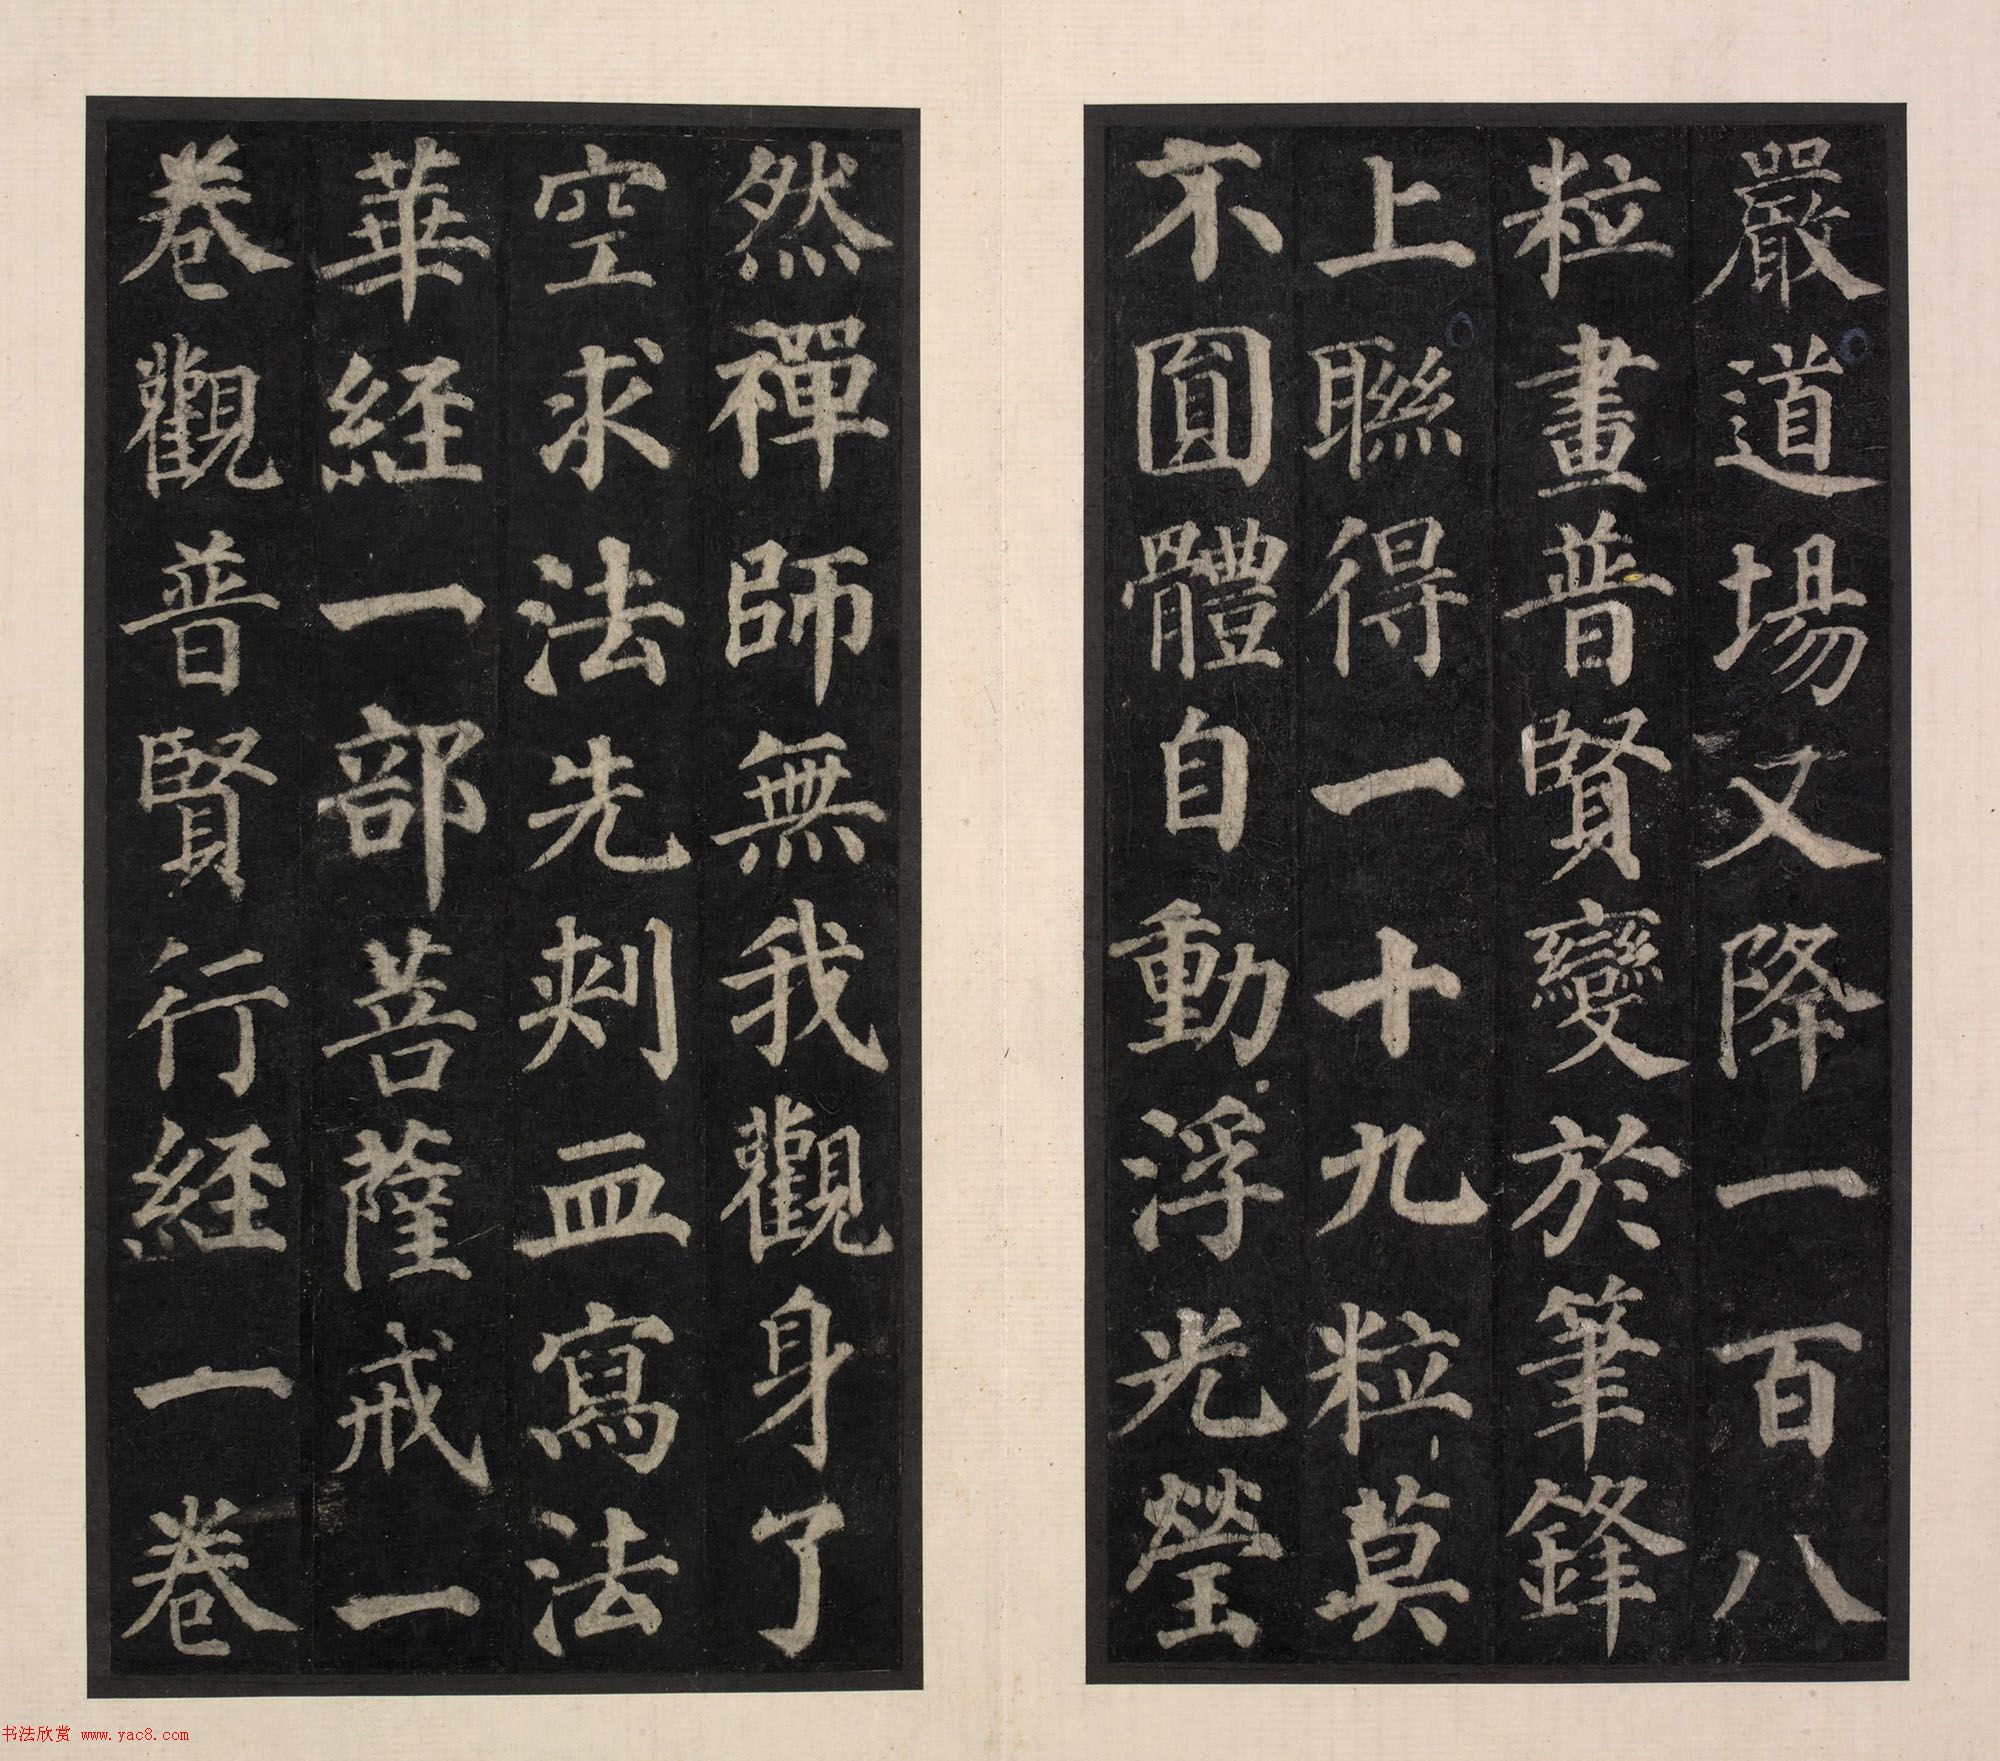 嚴道場又降一百八
粒畫普賢變於筆鋒
上聮得一十九粒莫
不圓體自動浮光瑩
然禪師無我觀身了
空求法先刺血寫法
華経一部菩薩戒一
卷觀普賢行経一卷
书法欣赏 www.yac8.com